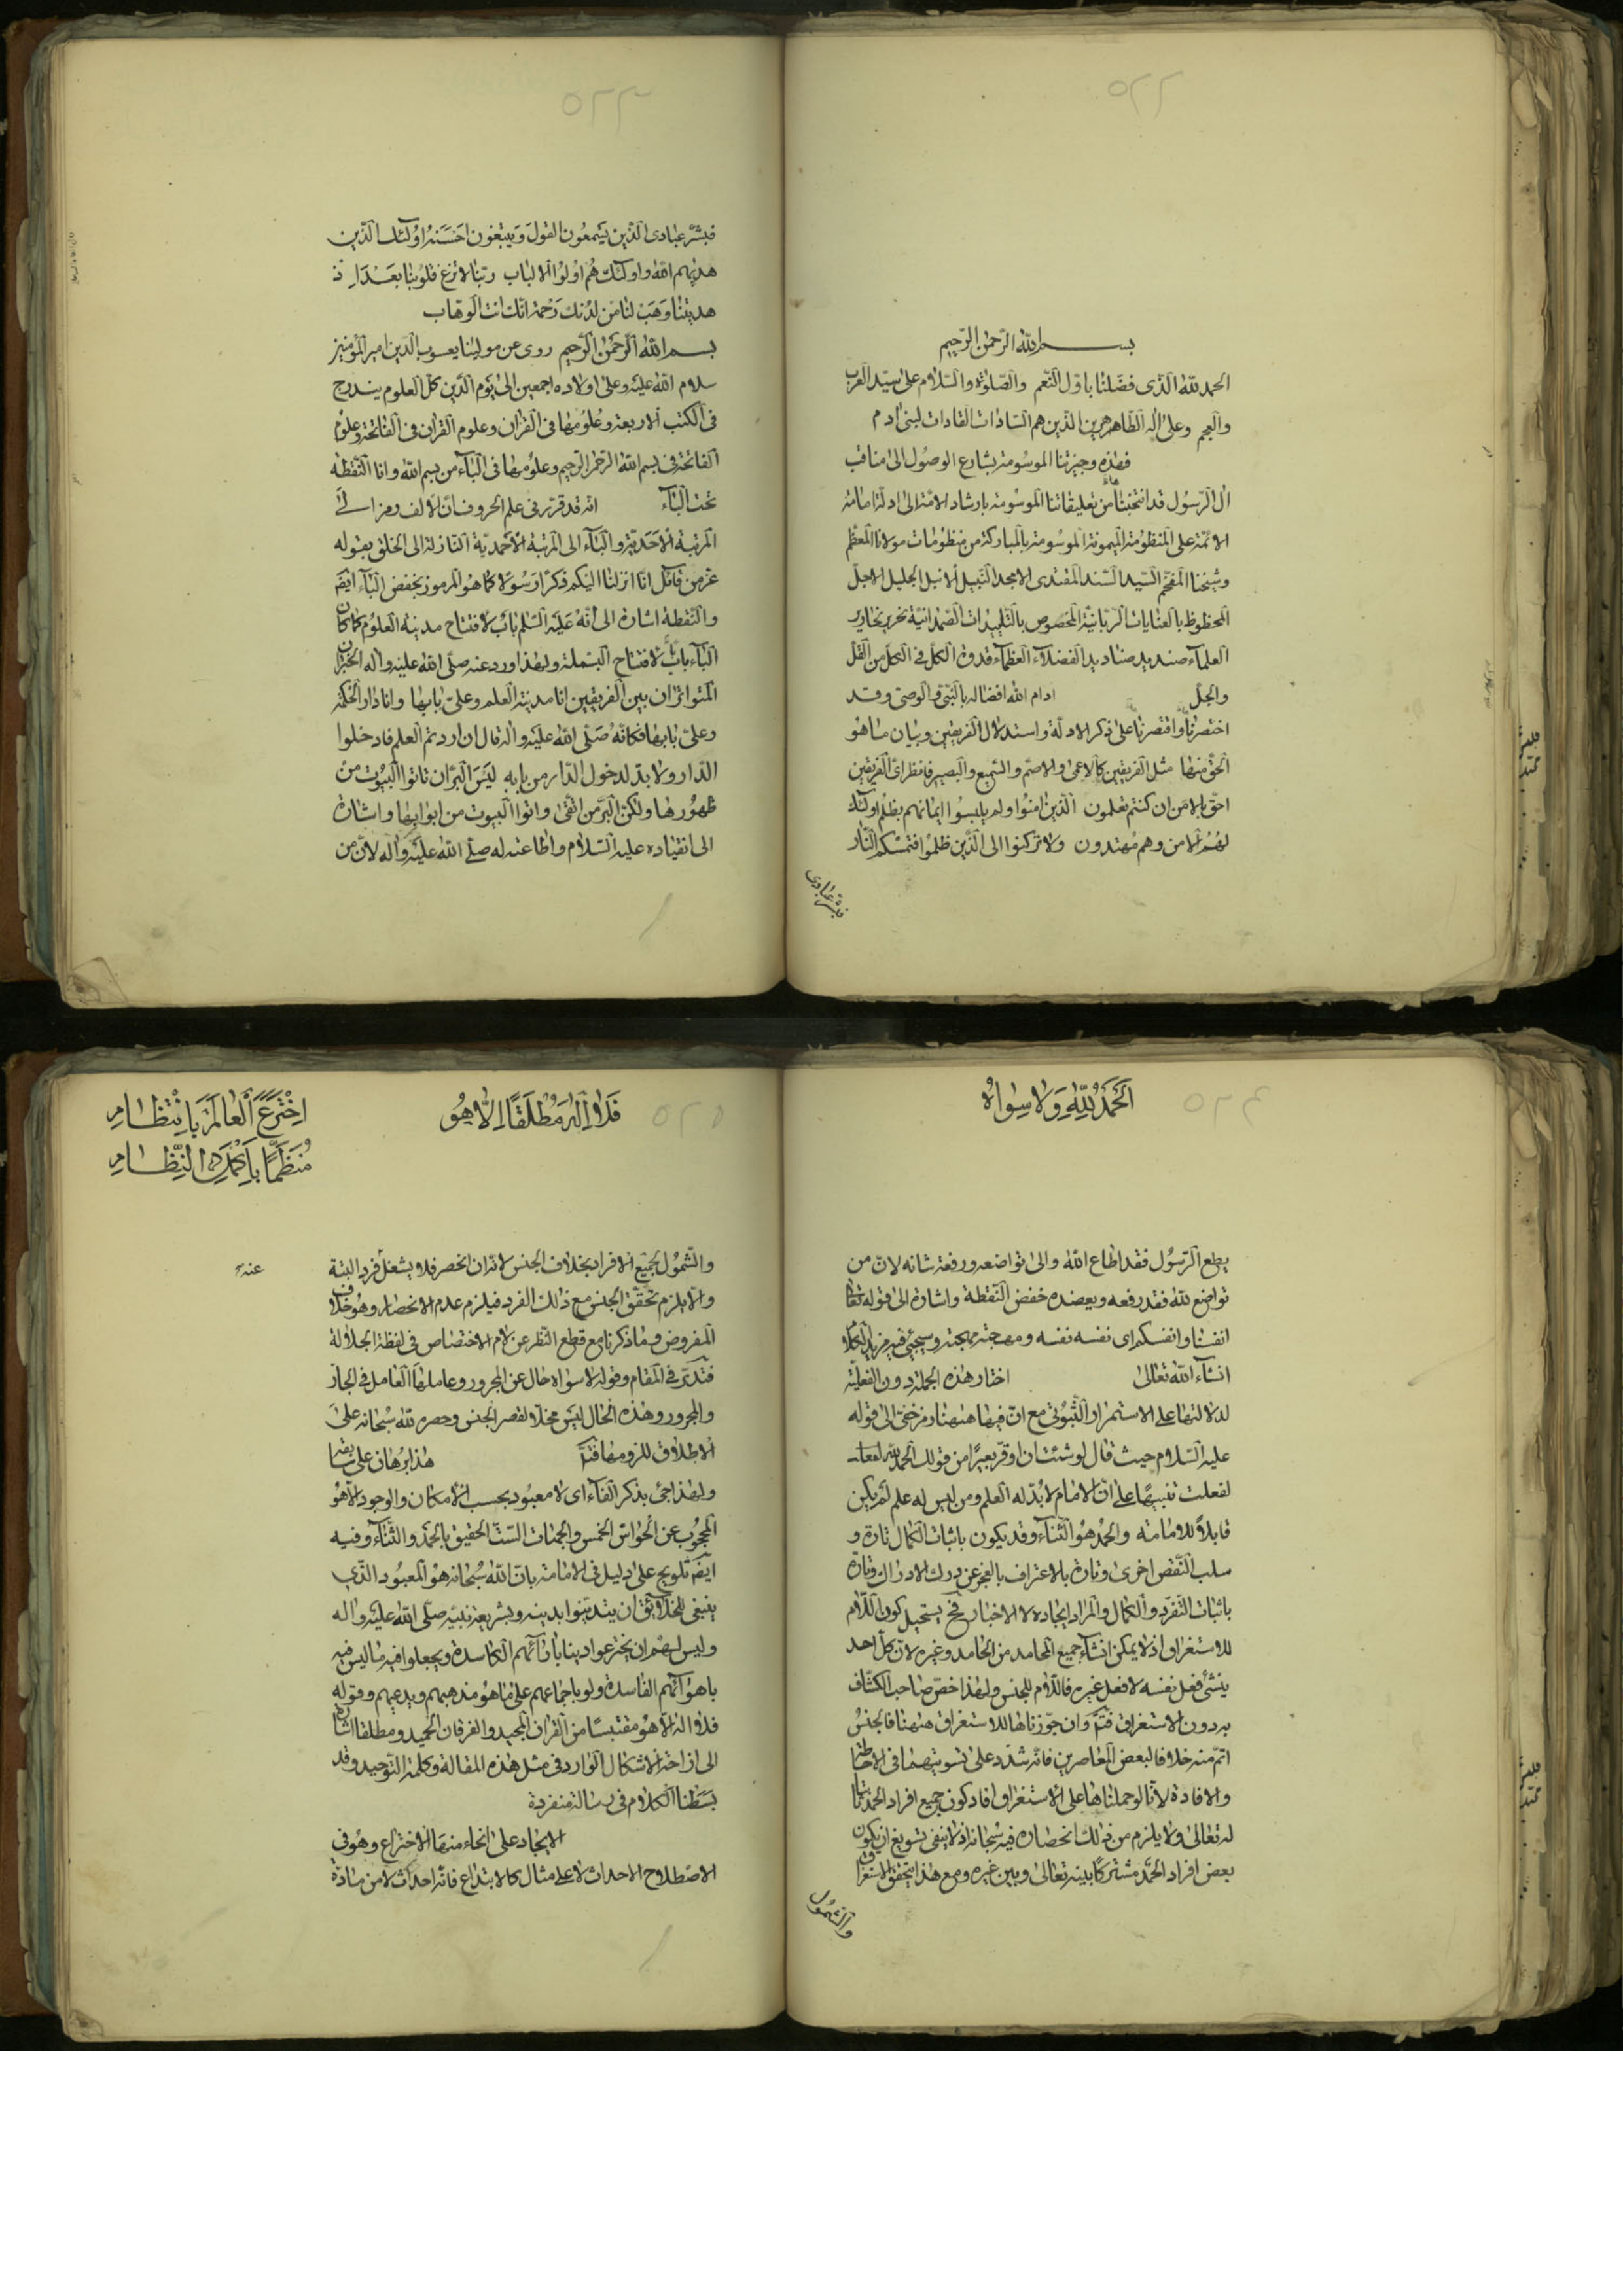 ٥٢٢
بسم الله الرحمن الرحيم
الحمد لله الذى فضلنا باوّل النعم والصلوة والسّلام على سيّد العرب
والعجم وعلى اله الطاهرين الذين هم السّادات القادات لبنى ادم
فهذه وجيزتنا الموسومة بشارع الوصول الى مناقب
ال الرّسول قد انتخبناها من تعليقاتنا الموسومة بارشاد الامّة الى ادلّة امامة
الائمّة على المنظومة الميمونة الموسومة بالمباركة من منظومات مولانا المعظم
وشيخنا المفخّم السّيد السّند المقتدى الامجد النّبيل الانبل الجليل الاجلّ
المحظوظ بالعنايات الرّبانيّة المخصوص بالتّاييدات الصّمدانيّة نحرير نحارير
العلماء صنديد صناديد الفضلاء العظماء قدوة الكلّ فى الكلّ من القلّ
والجلّ ادام الله افضاله بالنّبىّ والوصىّ وقد
اختصرنا واقتصرنا على ذكر الادلّة واستدلال الفريقين وبيان ما هو
الحقّ منها مثل الفريقين كالاعمى والاصمّ والسّميع والبصير فانظر اىّ الفريقين
احقّ بالامن ان كنتم تعلمون الّذين امنوا ولم يلبسوا ايمانهم بظلم اولئك
لهم الامن وهم مهتدون ولا تركنوا الى الّذين ظلموا فتمسّكم النّار
فبشّر عبادى
٥٢٣
فبشّر عبادى الّذين يستمعون القول ويتبعون احسنه اولئك الّذين
هديهم الله واولئك هم اولوا الالباب ربّنا لا تزغ قلوبنا بعد اذ
هديتنا وهب لنا من لدنك رحمة انّك انت الوهّاب
بسم الله الرّحمن الرّحيم روى عن مولينا يعسوب الدّين امير المؤمنين
سلام الله عليه وعلى اولاده اجمعين الى يوم الدّين كلّ العلوم يندرج
فى الكتب الاربعة وعلومها فى القران وعلوم القران فى الفاتحة وعلوم
الفاتحة فى بسم الله الرّحمن الرّحيم وعلومها فى البآء من بسم الله وانا النّقطة
تحت البآء انّه قد قرّر فى علم الحروف انّ الالف رمز الى
المرتبة الاحديّة والبآء الى المرتبة الاحمديّة النّازلة الى الخلق بقوله
عزّ من قائل انّا انزلنا اليكم ذكرًا رسولًا كما هو المرموز بخفض البآء ايضًا
والنّقطة اشارة الى انّه عليه السّلم باب لافتتاح مدينة العلوم كما كان
البآء باب لافتتاح البسملة ولهذا ورد عنه صلّى الله عليه واله الخبران
المتواتران بين الفريقين انا مدينة العلم وعلىّ بابها وانا دار الحكمة
وعلىّ بابها فكانّه صلّى الله عليه واله قال ان اردتم العلم فادخلوا
الدّار ولا بدّ لدخول الدّار من بابه ليس البرّ ان تاتوا البيوت من
ظهورها ولكنّ البرّ من اتّقى واتوا البيوت من ابوابها واشارة
الى انقياده عليه السّلام واطاعته له صلّى الله عليه واله لانّ من
٥٢٤
الحمد لله ولا سواه
يطع الرّسول فقد اطاع الله والى تواضعه ورفعة شانه لانّ من
تواضع لله فقد رفعه ويعضده خفض النّقطة واشارة الى قوله تعالى
انفسنا وانفسكم اى نفسه نفسه ومهجته مهجته وسيجيئ فيه مزيد الكلام
انشآء الله تعالى اختار هذه الجملة دون الفعليّة
لدلالتها على الاستمرار الثّبوتى مع انّ فيها هيهنا رمز خفىّ الى قوله
عليه السّلام حيث قال لو شئت ان اوقر بعيرًا من قولك الحمد لله لفعلت
لفعلت تنبيهًا على انّ الامام لا بدّ له العلم ومن ليس له علم لم يكن
قابلًا للامامة والحمد هو الثّنآء وقد يكون باثبات الكمال تارة و
سلب النّقص اخرى وتارة بالاعتراف بالعجز عن درك الادراك وتارة
باثبات التّفرّد والكمال والمراد ايجاده لا الاخبار فح يستحيل كون اللّام
للاستغراق اذ لا يمكن انشآء جميع المحامد من الحامد وغيره لانّ كلّ احد
ينشئ فعل نفسه لا فعل غيره فاللّام للجنس ولهذا خصّ صاحب الكشّاف
به دون الاستغراق فتمّ وان جوّزناها للاستغراق هيهنا فالجنس
اتمّ منه خلافا لبعض المعاصرين فانّه شدّد على تسويتهما فى الاحاطة
والافادة لانّا لو حملناها على الاستغراق افاد كون جميع افراد الحمد ثابتا
له تعالى ولا يلزم من ذلك انحصاره فيه سبحانه اذ لا ينفى تسويغ ان يكون
بعض افراد الحمد مشتركًا بينه تعالى وبين غيره ومع هذا يتحقّق الاستغراق
والشّمول
٥٢٥
فلا اله مطلقًا الّا هو
اخترع العالم بانتظام
منظّمًا باكمل النّظام
والشّمول لجميع الافراد بخلاف الجنس لانّه ان انحصر فلا يشغل فرد البتة
والّا يلزم تحقّق الجنس مع ذلك الفرد فيلزم عدم الانحصار وهو خلاف
المفروض وما ذكرنا مع قطع النّظر عن لام الاختصاص فى لفظة الجلالة
فتدبّر فى المقام وقوله لا سواه حال عن المجرور وعاملها العامل فى الجار
والمجرور وهذه الحال ليس مخلّا لقصر الجنس وحصره لله سبحانه على
الاطلاق للزومها فتمّ هذا برهان على سابقه
ولهذا جئ بذكر الفآء اى لا معبود بحسب الامكان والوجود الّا هو
المحجوب عن الحواسّ الخمس والجهات السّتّ الحقيق بالحمد والثّنآء وفيه
ايضًا تلويح على دليل فى الامامة بانّ الله سبحانه هو المعبود الّذى
ينبغى للخلائق ان يتديّنوا بدينه وبشريعة نبيّه صلّى الله عليه واله
وليس لهم ان يخترعوا دينا بارآئهم الكاسدة ويجعلوا فيه ما ليس فيه
باهوآئهم الفاسدة ولو باجماعهم على ما هو مذهبهم وبدعيهم وقوله
فلا اله الّا هو مقتبسًا من القران المجيد والفرقان الحميد ومطلقا اشارة
الى ازاحة الاشكال الوارد فى مثل هذه المقالة وكلمة التّوحيد وقد
بسطنا الكلام فى رسالة منفردة
الايجاد على انحاء منها الاختراع وهو فى
الاصطلاح الاحداث لا على مثال كالابتداع فانّه احداث لا من مادّة
عنه